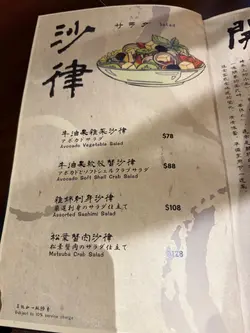 沙律
サラダ Salad
牛油果雜菜沙律 $78
アボカドサラダ
Avocado Vegetable Salad
牛油果軟殼蟹沙律 $88
アボカドとソフトシェルクラブサラダ
Avocado Soft Shell Crab Salad
雜錦刺身沙律 $108
Assorted Sashimi Salad
松葉蟹肉沙律 $128
松葉蟹肉のサラダ仕立て
Matsuba Crab Salad
Subject to 10% service charge
開